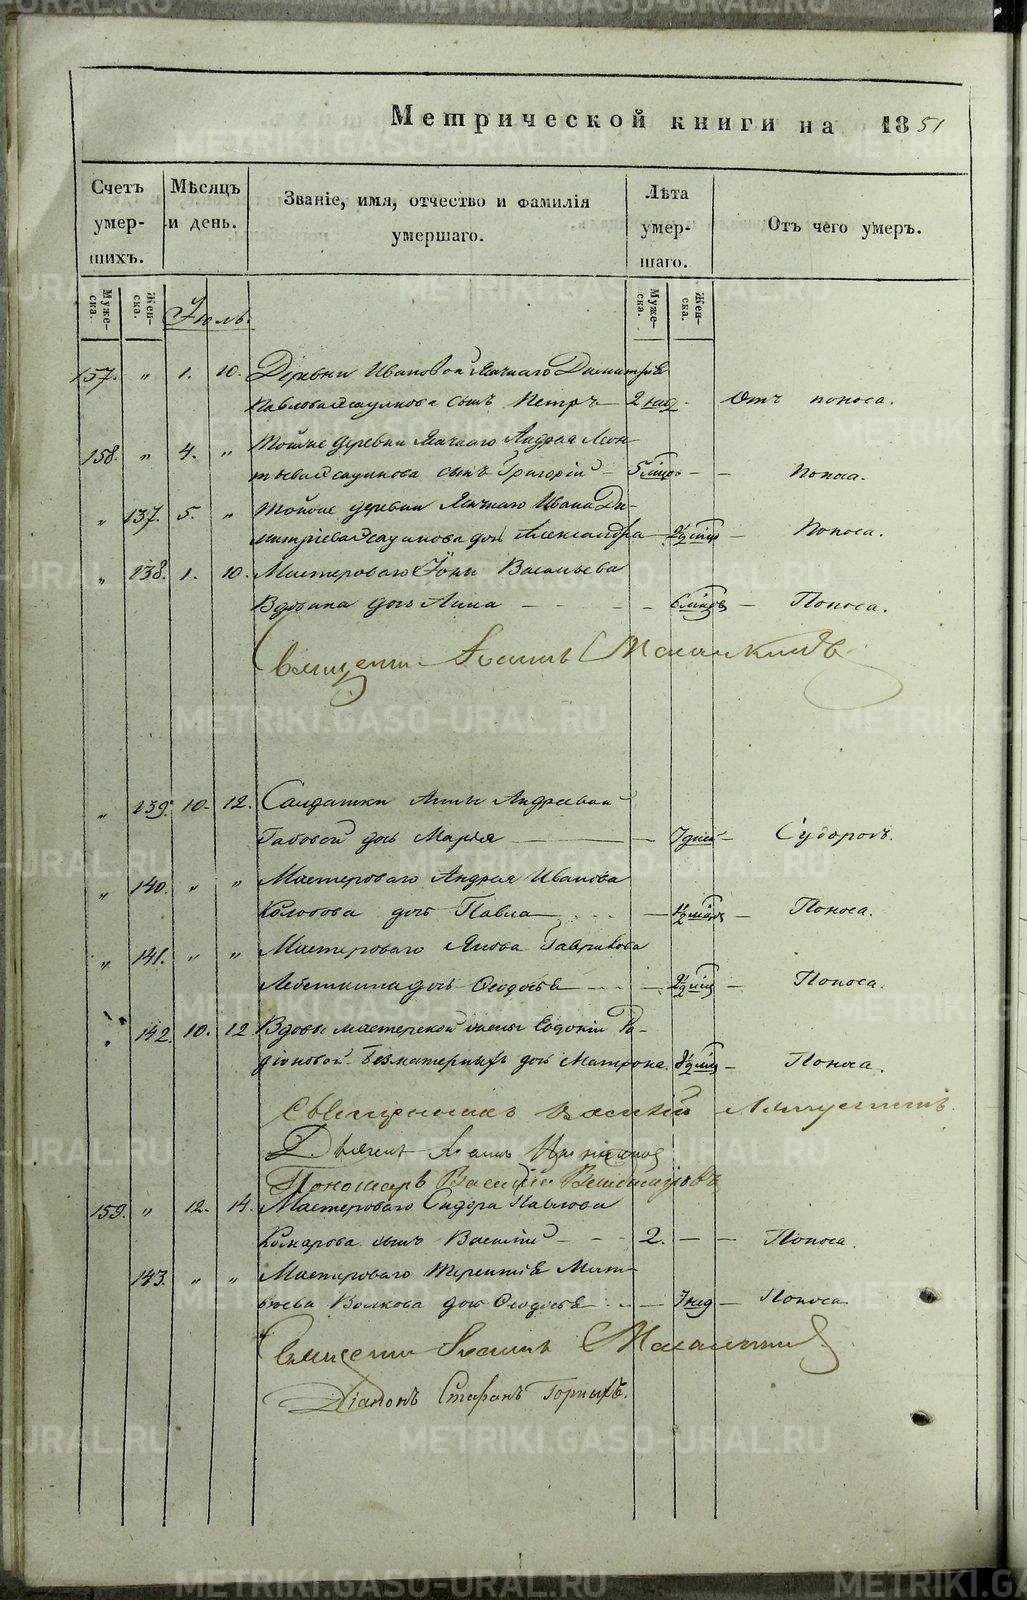 Метрической книги на 1851
Счетъ умер- шихъ.
Мѣсяцъ и день.
Званіе, имя, отчество и фамилія умершаго.
Лѣта умер- шаго.
Отъ чего умеръ.
Муже- ска.
Жен- ска.
Муже- ска.
Жен- ска.
Іюль.
157. " 1. 10. Деревни Ивановой Димитрія
Павлова сынъ Петръ 2 нед Отъ поноса.
158. " 4. " Тойже деревни Андрея Леон-
тьева сынъ Григорій 5 Поноса.
" 137. 5. " Тойже деревни Ивана Ди-
митріева дочь Александра Поноса.
" 138. 1. 10. Мастероваго Іоны Васильева
Вдовина дочь Анна 6 Поноса.
Священникъ Іоаннъ
" 139. 10. 12. Солдатки Анны Андреевой
дочь Марія 7 дней Судоровъ.
" 140. " " Мастероваго Андрея Иванова
Колотова дочь Павла Поноса.
" 141. " " Мастероваго Якова Гаврилова
дочь Ѳеодосья Поноса.
142. 10. 12. Вдовы мастерской жены Евдокіи Ра-
діоновой Безматерныхъ дочь Матрона. Поноса.
Священникъ Василій
Іоаннъ
Пономарь Василій
159. " 12. 14. Мастероваго Сидора Павлова
Комарова сынъ Василій 2. Поноса.
143. " " Мастероваго Терентія Мат-
вѣева Волкова дочь Ѳеодосья 7 нед Поноса.
Священникъ Іоаннъ
Діаконъ Стефанъ Горныхъ.
METRIKI.GASO-URAL.RU